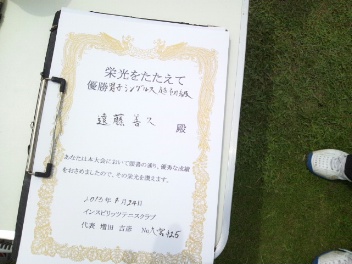 栄光をたたえて
優勝男子シングルス
遠藤善久 殿
あなたは本大会において頭書の通り、優秀な成績
をおさめましたので、その栄光を讃えます。
2013年 月24日
インスピリッツテニスクラブ
代表 増田 吉彦